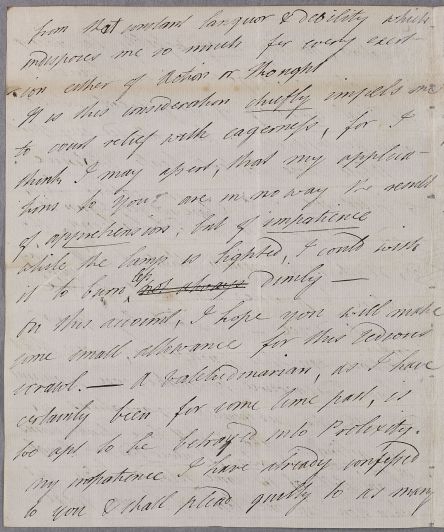 from that constant languor & debility which
indisposes me so much for every exert
ion either of Action or Thought
It is this consideration chiefly impels me
to court relief with eagerness, for I
think I may assert, that my applica-
tions to you are in no way the result
of apprehensions; but of impatience
while the lamp is lighted, I could wish
it to burn less not always dimly —
On this account, I hope you will make
some small allowance for this tedious
scrawl. — A Valetudinarian, as I have
certainly been for some time past, is
too apt to be betrayed into Prolixity.
my impatience I have already confessed
to you & shall plead guilty to as many